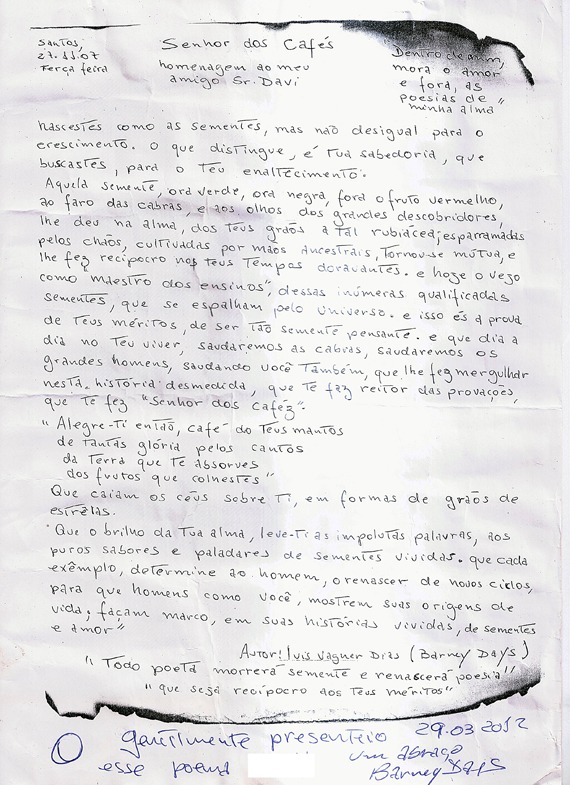 Santos,
27.11.07
Terça feira
Senhor dos Cafés
homenagem ao meu
amigo Sr. Davi
Dentro de mim,
mora o amor
e fora, as
poesias de
minha alma"
Nascestes como as sementes, mas não desigual para o
crescimento. o que distingue, é tua sabedoria, que
buscastes, para o teu enaltecimento.
Aquela semente, ora verde, ora negra, fora o fruto vermelho,
ao faro das cabras, e aos olhos dos grandes descobridores,
lhe deu na alma, dos teus grãos a tal rubiácea; esparramadas
pelos chãos, cultivadas por mãos ancestrais, tornou-se mútua, e
lhe fez recíproco nos teus tempos doravantes. e hoze o vezo
como "maestro dos ensinos", dessas inúmeras qualificadas
sementes, que se espalham pelo universo. e isso és a prova
de teus méritos, de ser tão semente pensante. e que dia a
dia no teu viver, saudaremos as cabras, saudaremos os
grandes homens, saudando você também, que lhe fez mergulhar
nesta história desmedida, que te faz reitor das provações,
que te fez "Senhor dos Caféz".
"Alegre-Ti então, café do teus mantos
de tantas glória pelos cantos
da terra que te absorves
dos frutos que colhestes"
Que caiam os céus sobre ti, em formas de grãos de
estrêlas.
"Que o brilho da tua alma, leve-ti as impolutas palavras, aos
puros sabores e paladares de sementes vividas. que cada
exêmplo, determine ao homem, o renascer de novos ciclos,
para que homens como você, mostrem suas origens de
vida; façam marco, em suas histórias vividas, de sementes
e amor"
Autor: Luis Vagner Dias (Barney Days)
"Todo poeta morrerá semente e renascerá poesia"
"que seja recípocro aos teus méritos"
gentilmente presenteio 29.03.2012
esse poema um abraço
Barney Days